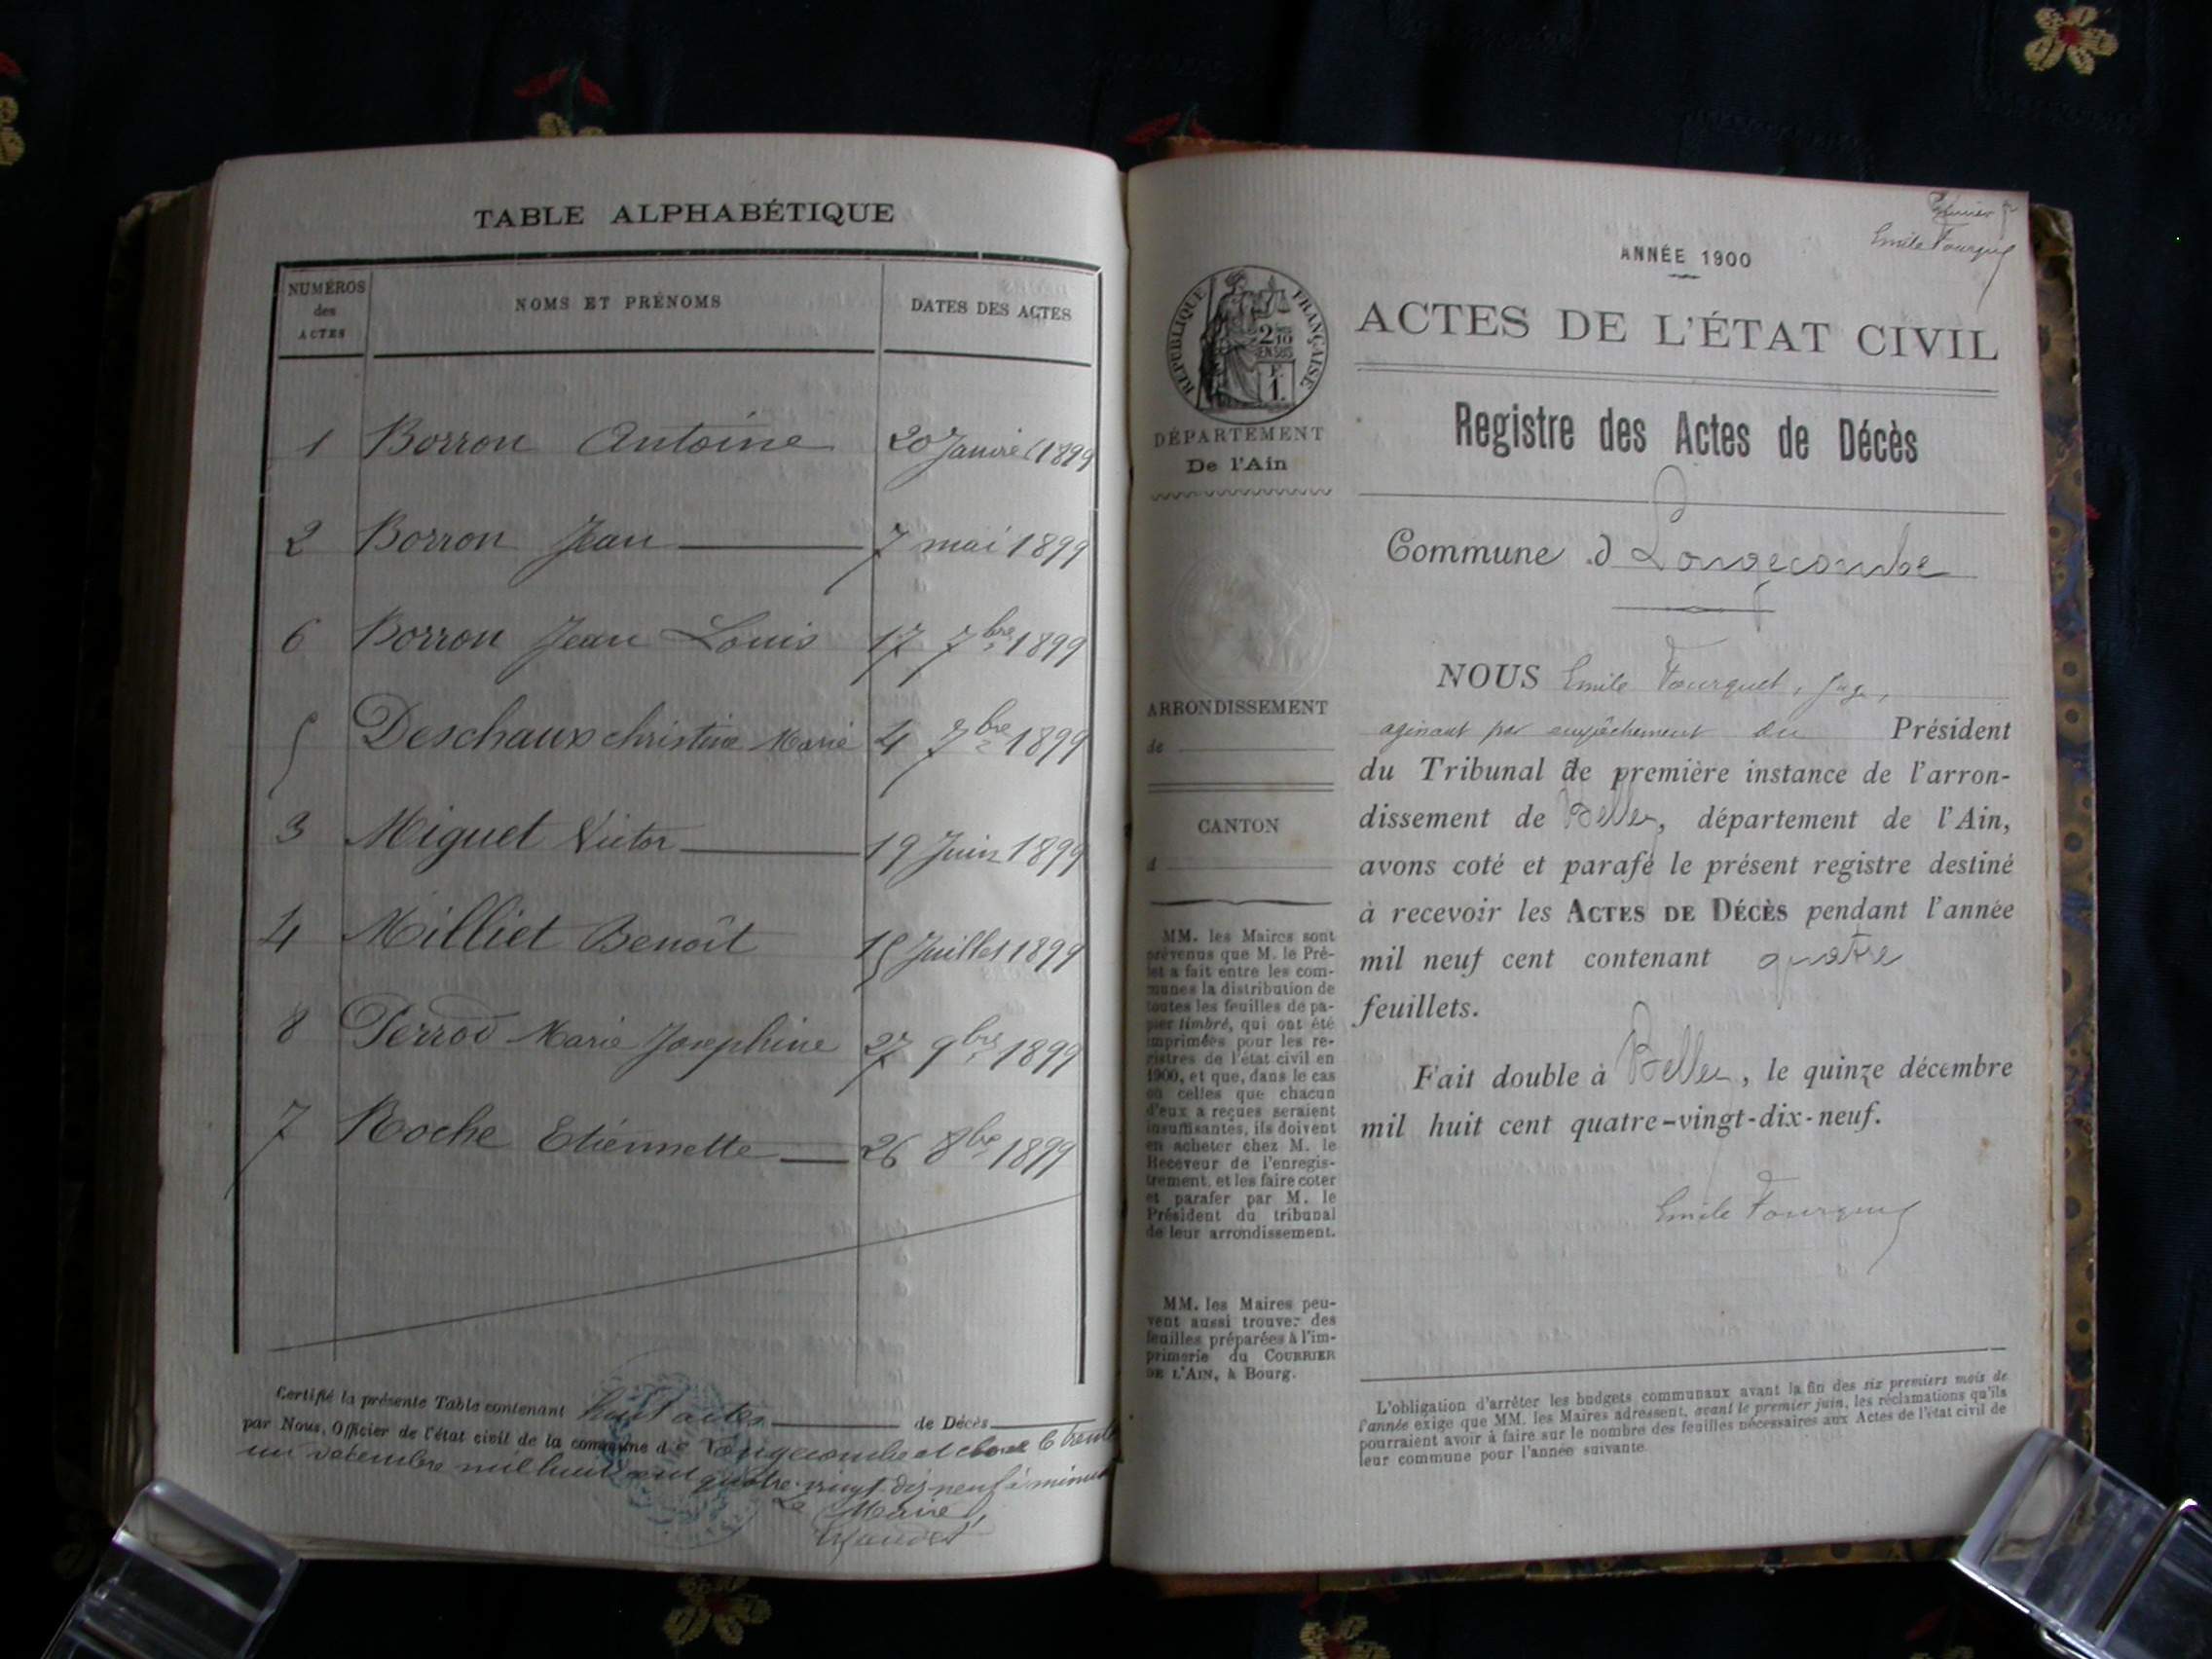 TABLE ALPHABÉTIQUE
NUMÉROS
des
ACTES
NOMS ET PRÉNOMS
DATES DES ACTES
1 Borron Antoine 20 Janvier 1899
2 Borron Jean 7 mai 1899
6 Borron Jean Louis 17 7bre 1899
5 Deschaux christine Marie 4 7bre 1899
3 Miguet Victor 19 Juin 1899
4 Milliet Benoît 15 Juillet 1899
8 Perrod Marie Josephine 27 9bre 1899
7 Roche Etiennette 26 8bre 1899
Certifié la présente Table contenant huit actes de Décès
par Nous, Officier de l'état civil de la commune de Longecombe et close le trente
un décembre mil huit cent quatre-vingt-dix-neuf à minuit
Le Maire,
Emile Fourquet
ANNÉE 1900
RÉPUBLIQUE FRANÇAISE
2/10
EN SUS
F.
1.
ACTES DE L'ÉTAT CIVIL
DÉPARTEMENT
De l'Ain
Registre des Actes de Décès
Commune d Longecombe
ARRONDISSEMENT
de
CANTON
d
MM. les Maires sont
prévenus que M. le Pré-
fet a fait entre les com-
munes la distribution de
toutes les feuilles de pa-
pier timbré, qui ont été
imprimées pour les re-
gistres de l'état civil en
1900, et que, dans le cas
où celles que chacun
d'eux a reçues seraient
insuffisantes, ils doivent
en acheter chez M. le
Receveur de l'enregis-
trement, et les faire coter
et parafer par M. le
Président du tribunal
de leur arrondissement.
MM. les Maires peu-
vent aussi trouver des
feuilles préparées à l'im-
primerie du COURRIER
DE L'AIN, à Bourg.
NOUS Emile Fourquet, juge,
agissant par empêchement du Président
du Tribunal de première instance de l'arron-
dissement de Belley, département de l'Ain,
avons coté et parafé le présent registre destiné
à recevoir les ACTES DE DÉCÈS pendant l'année
mil neuf cent contenant quatre
feuillets.
Fait double à Belley, le quinze décembre
mil huit cent quatre-vingt-dix-neuf.
Emile Fourquet
L'obligation d'arrêter les budgets communaux avant la fin des six premiers mois de
l'année exige que MM. les Maires adressent, avant le premier juin, les réclamations qu'ils
pourraient avoir à faire sur le nombre des feuilles nécessaires aux Actes de l'état civil de
leur commune pour l'année suivante.